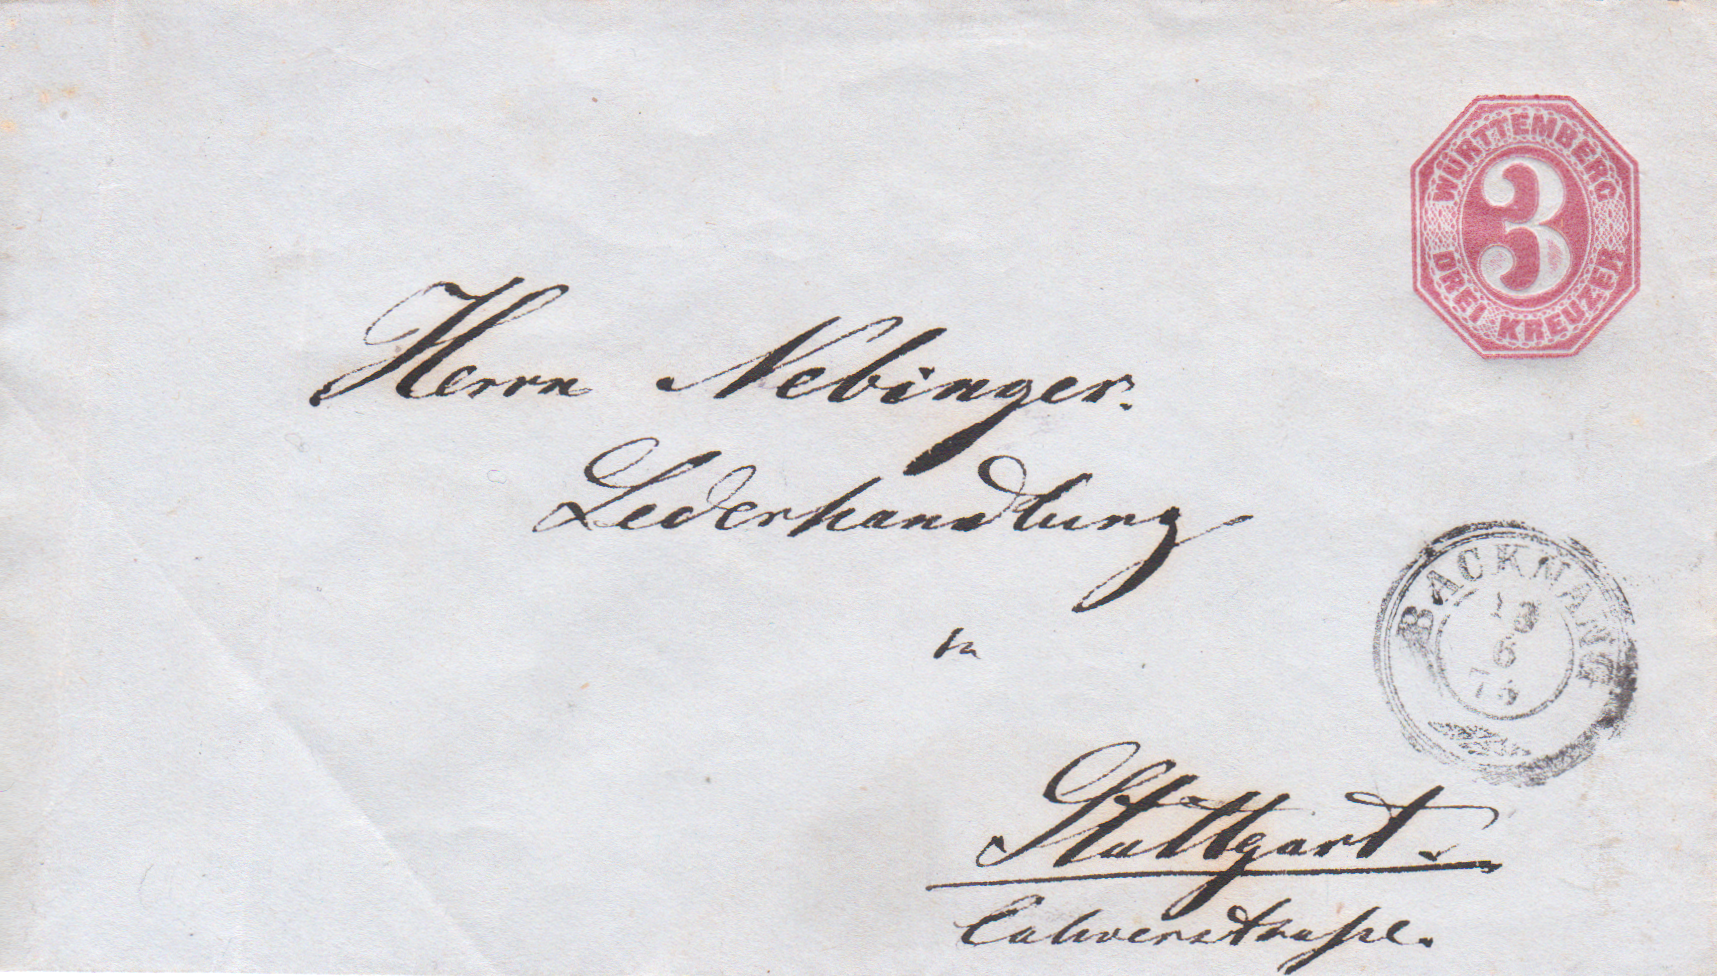 WÜRTTEMBERG
3
DREI KREUZER
Herrn Nebinger.
Lederhandlung
in
BACKNANG
6
Stuttgart.
Calwerstraße.